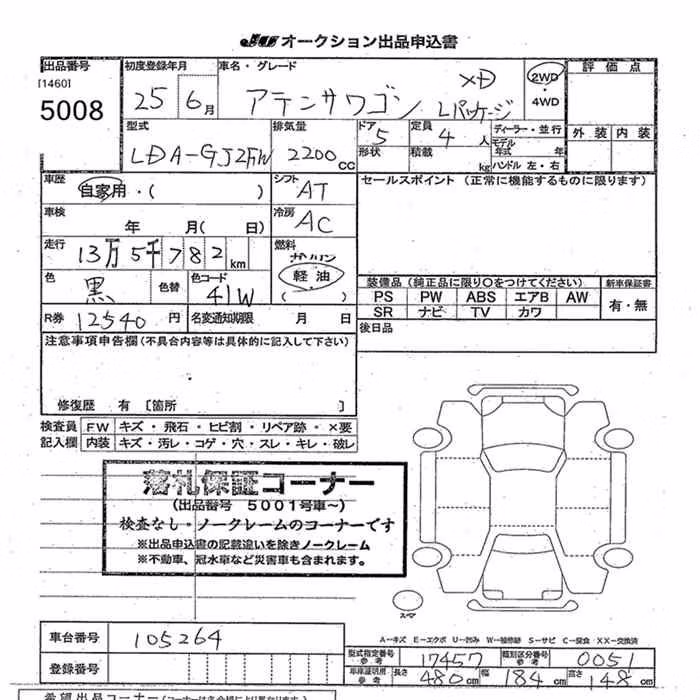 JU オークション出品申込書
出品番号 初度登録年月 車名・グレード 評価点
[1460] XD 2WD
5008 25 6月 アテンザワゴン Lパッケージ ・4WD
型式 排気量 ドア 定員 ディーラー・並行 外装 内装
LDA-GJ2FW 2200cc 5 4人 モデル年式 年
形状 積載 kg ハンドル 左・右
車歴 自家用・( ) シフト AT セールスポイント (正常に機能するものに限ります)
車検 年 月( 日) 冷房 AC
走行 13万5千782km 燃料 ガソリン
軽油
( )
色 黒 色替 色コード 41W
装備品 (純正品に限り○をつけてください) 新車保証書
PS PW ABS エアB AW 有・無
SR ナビ TV カワ
R券 12540円 名変通知期限 月 日 後日品
注意事項申告欄 (不具合内容等は具体的に記入して下さい)
修復歴 有 [箇所 ]
検査員 FW キズ・飛石・ヒビ割・リペア跡・×要
記入欄 内装 キズ・汚レ・コゲ・穴・スレ・キレ・破レ
落札保証コーナー
(出品番号 5001号車~)
検査なし・ノークレームのコーナーです
※出品申込書の記載違いを除きノークレーム
※不動車、冠水車など災害車も含まれます。
スペア
A-キズ E-エクボ U-凹み W-補修跡 S-サビ C-腐食 XX-交換済
車台番号 105264
型式指定番号 参考 17457 類別区分番号 参考 0051
登録番号 車庫証明用 参考 長さ 480cm 幅 184cm 高さ 148cm
希望出品コーナー